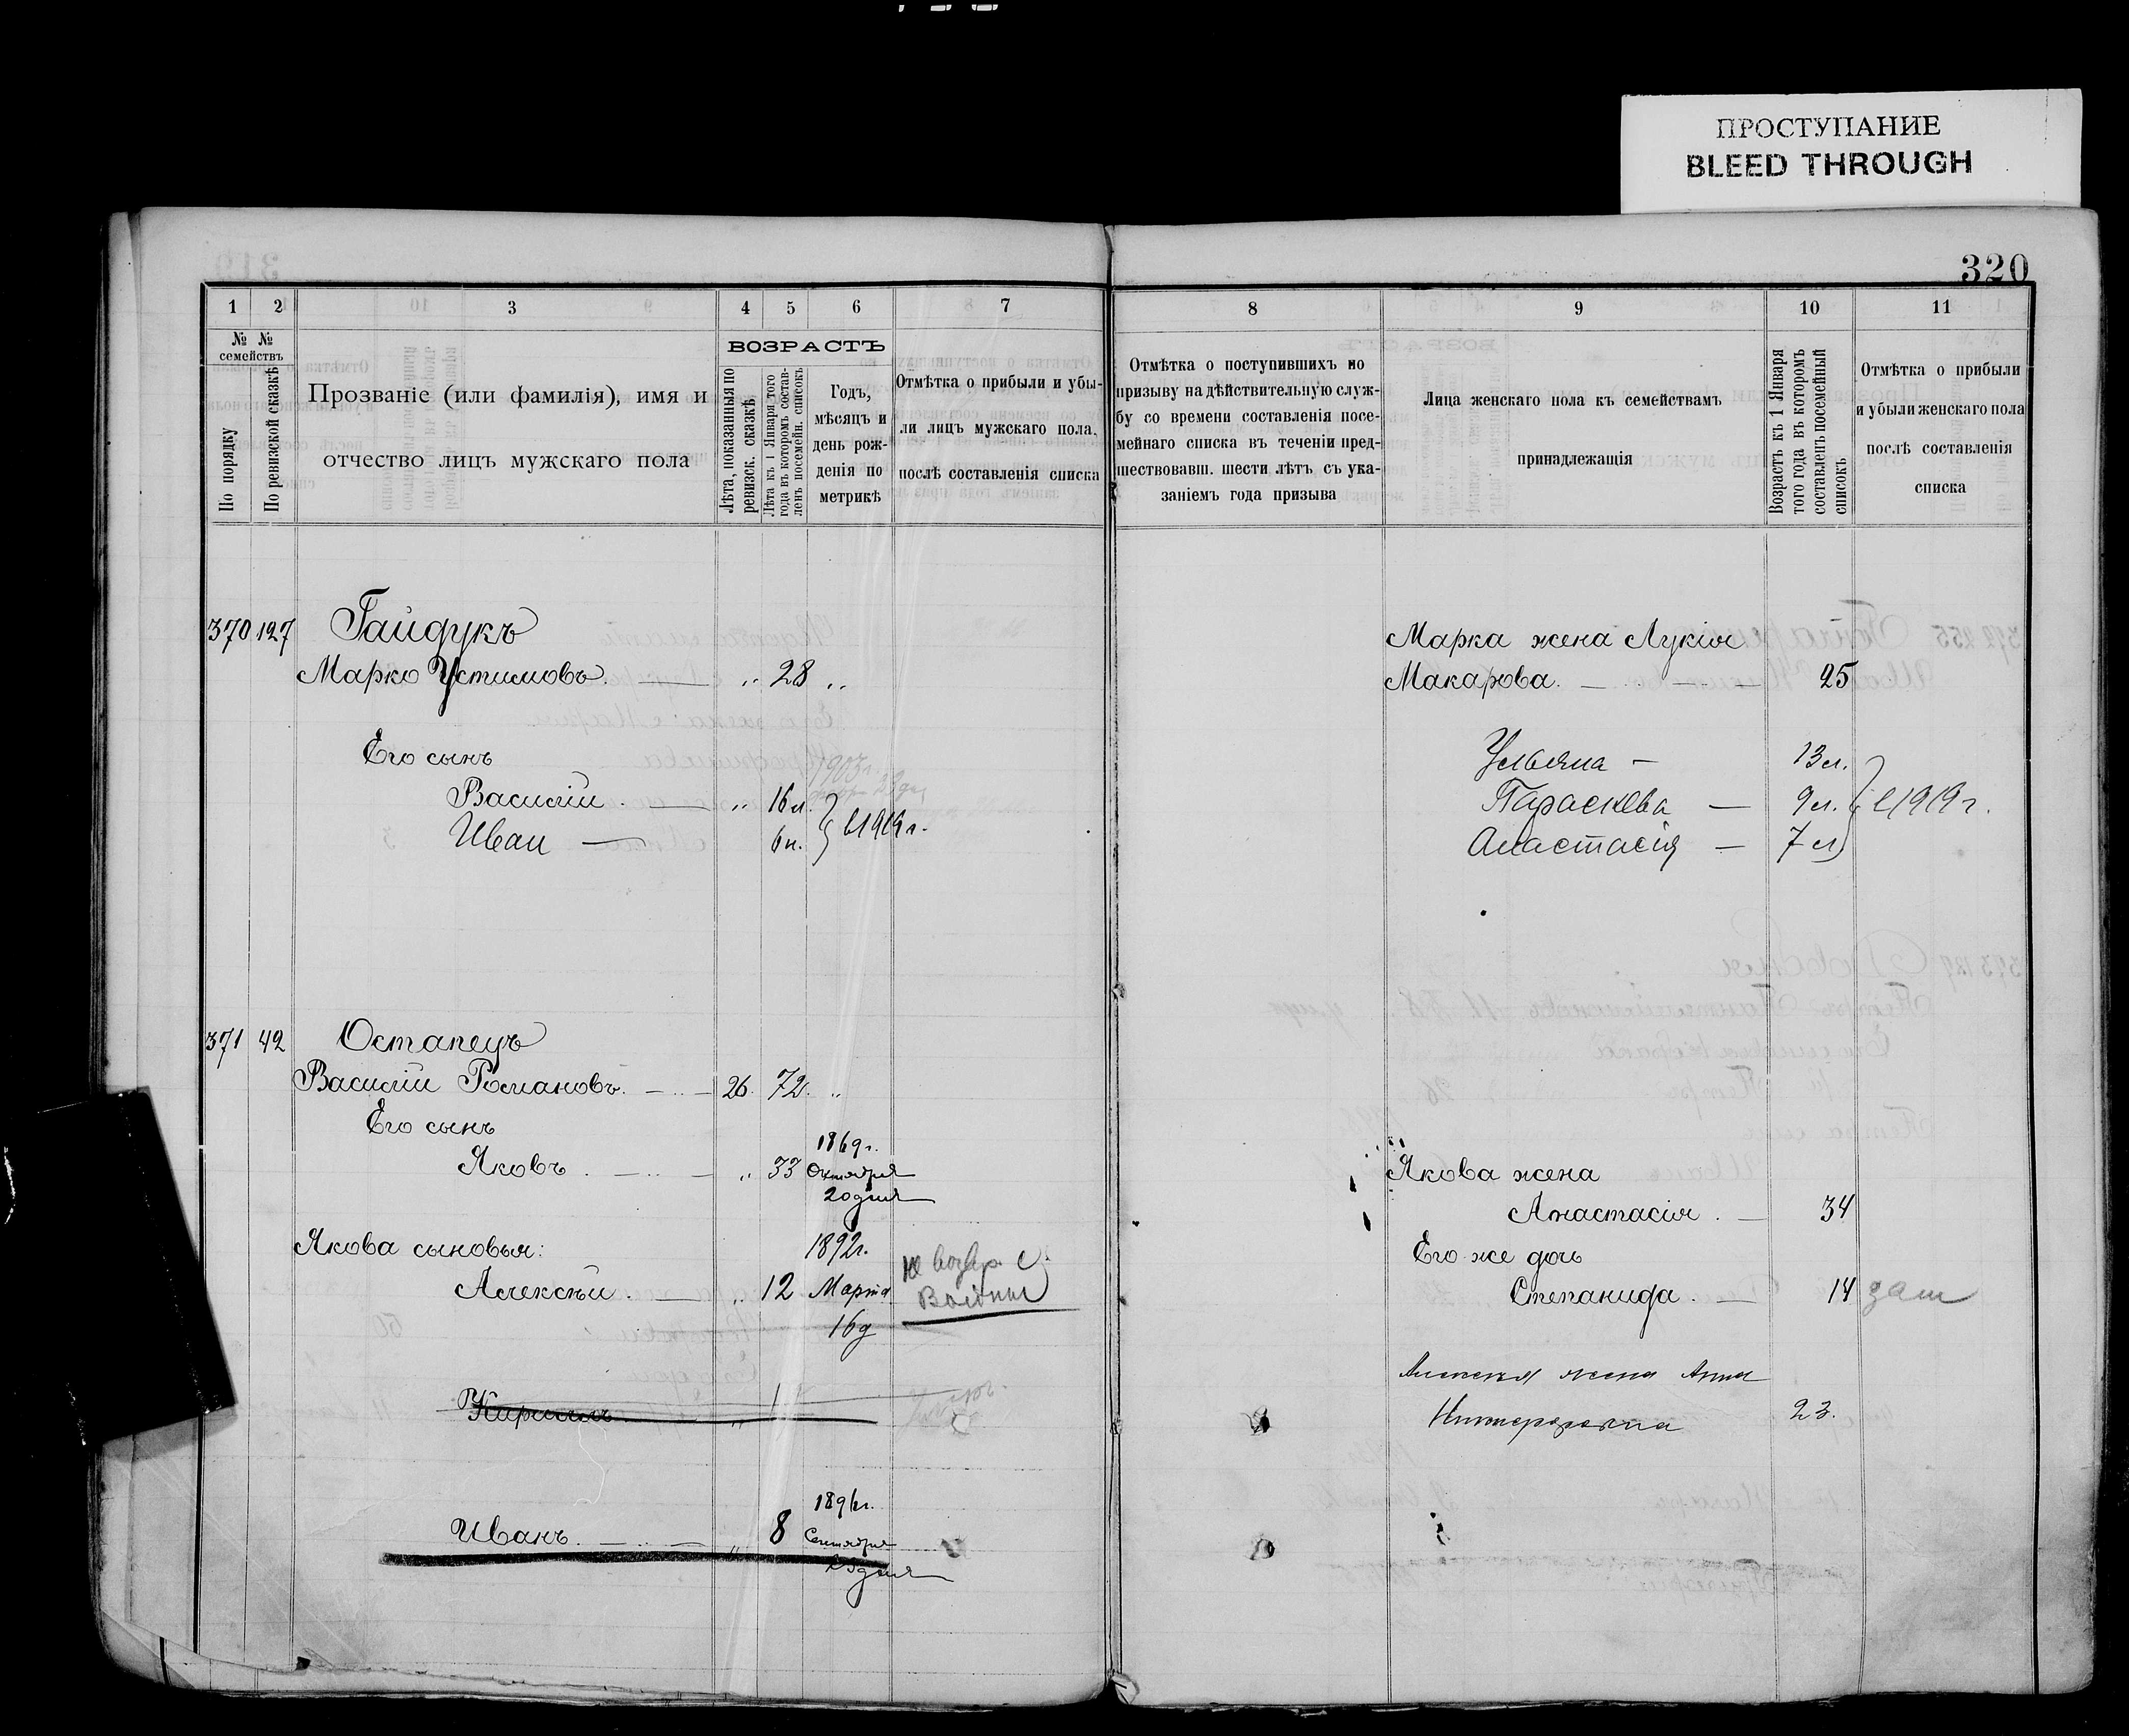 ПРОСТУПАНИЕ
BLEED THROUGH
320
1 2 3 4 5 6 7
№ №
семействъ
По порядку
По ревизской сказкѣ
Прозваніе (или фамилія), имя и
отчество лицъ мужскаго пола
ВОЗРАСТЪ
Лѣта, показанныя по
ревизск. сказкѣ
Лѣта къ 1 Января того
года въ которомъ состав-
ленъ посемейн. списокъ
Годъ,
мѣсяцъ и
день рож-
денія по
метрикѣ
Отмѣтка о прибыли и убы-
ли лицъ мужскаго пола,
послѣ составленія списка
370 127 Гайдукъ
Марко Устимовъ. — „ 28 „
Его сынъ
1903г.
Василій. — „ 16 л.
Иван — 6 л. } в 1919 г.
371 42 Остапецъ
Василій Романовъ. — 26. 72. „
Его сынъ
1869г.
Яковъ. — „ 33 Октября
20 дня
Якова сыновья: 1892г.
Алексѣй. — „ 12 Марта
16 д
Не возвр. с
Войны
Кириллъ
189 г.
Иванъ. — „ 8 Сентября
дня
8 9 10 11
Отмѣтка о поступившихъ по
призыву на дѣйствительную служ-
бу со времени составленія посе-
мейнаго списка въ теченіи пред-
шествовавш. шести лѣтъ съ ука-
заніемъ года призыва
Лица женскаго пола къ семействамъ
принадлежащія
Возрастъ къ 1 Января
того года въ которомъ
составленъ посемейный
списокъ
Отмѣтка о прибыли
и убыли женскаго пола
послѣ составленія
списка
Марка жена Лукія
Макарова. — 25
Ульяна — 13 л.
Параскева — 9 л. } в 1919 г.
Анастасія — 7 л
Якова жена
Анастасія. — 34
Его же дочь
Степанида. — 14 зам
Алексея жена Анна
23.